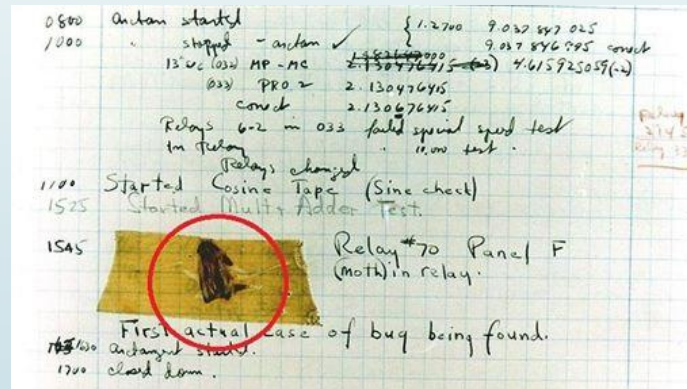 0800 antan started { 1.2700 9.037 847 025
1000 " stopped - antan ✓ 9.037 846 995 conect
13"uc (032) MP - MC 2.130476415 (-3) 4.615925059(-2)
(033) PRO 2 2.130476415
conect 2.130676415
Relays 6-2 in 033 failed special speed test
In Relay " 10,000 test .
Relays changed
1100 Started Cosine Tape (Sine check)
1525 Started Mult+ Adder Test.
1545 Relay #70 Panel F
(moth) in relay.
First actual case of bug being found.
1630 antangent started.
1700 closed down.